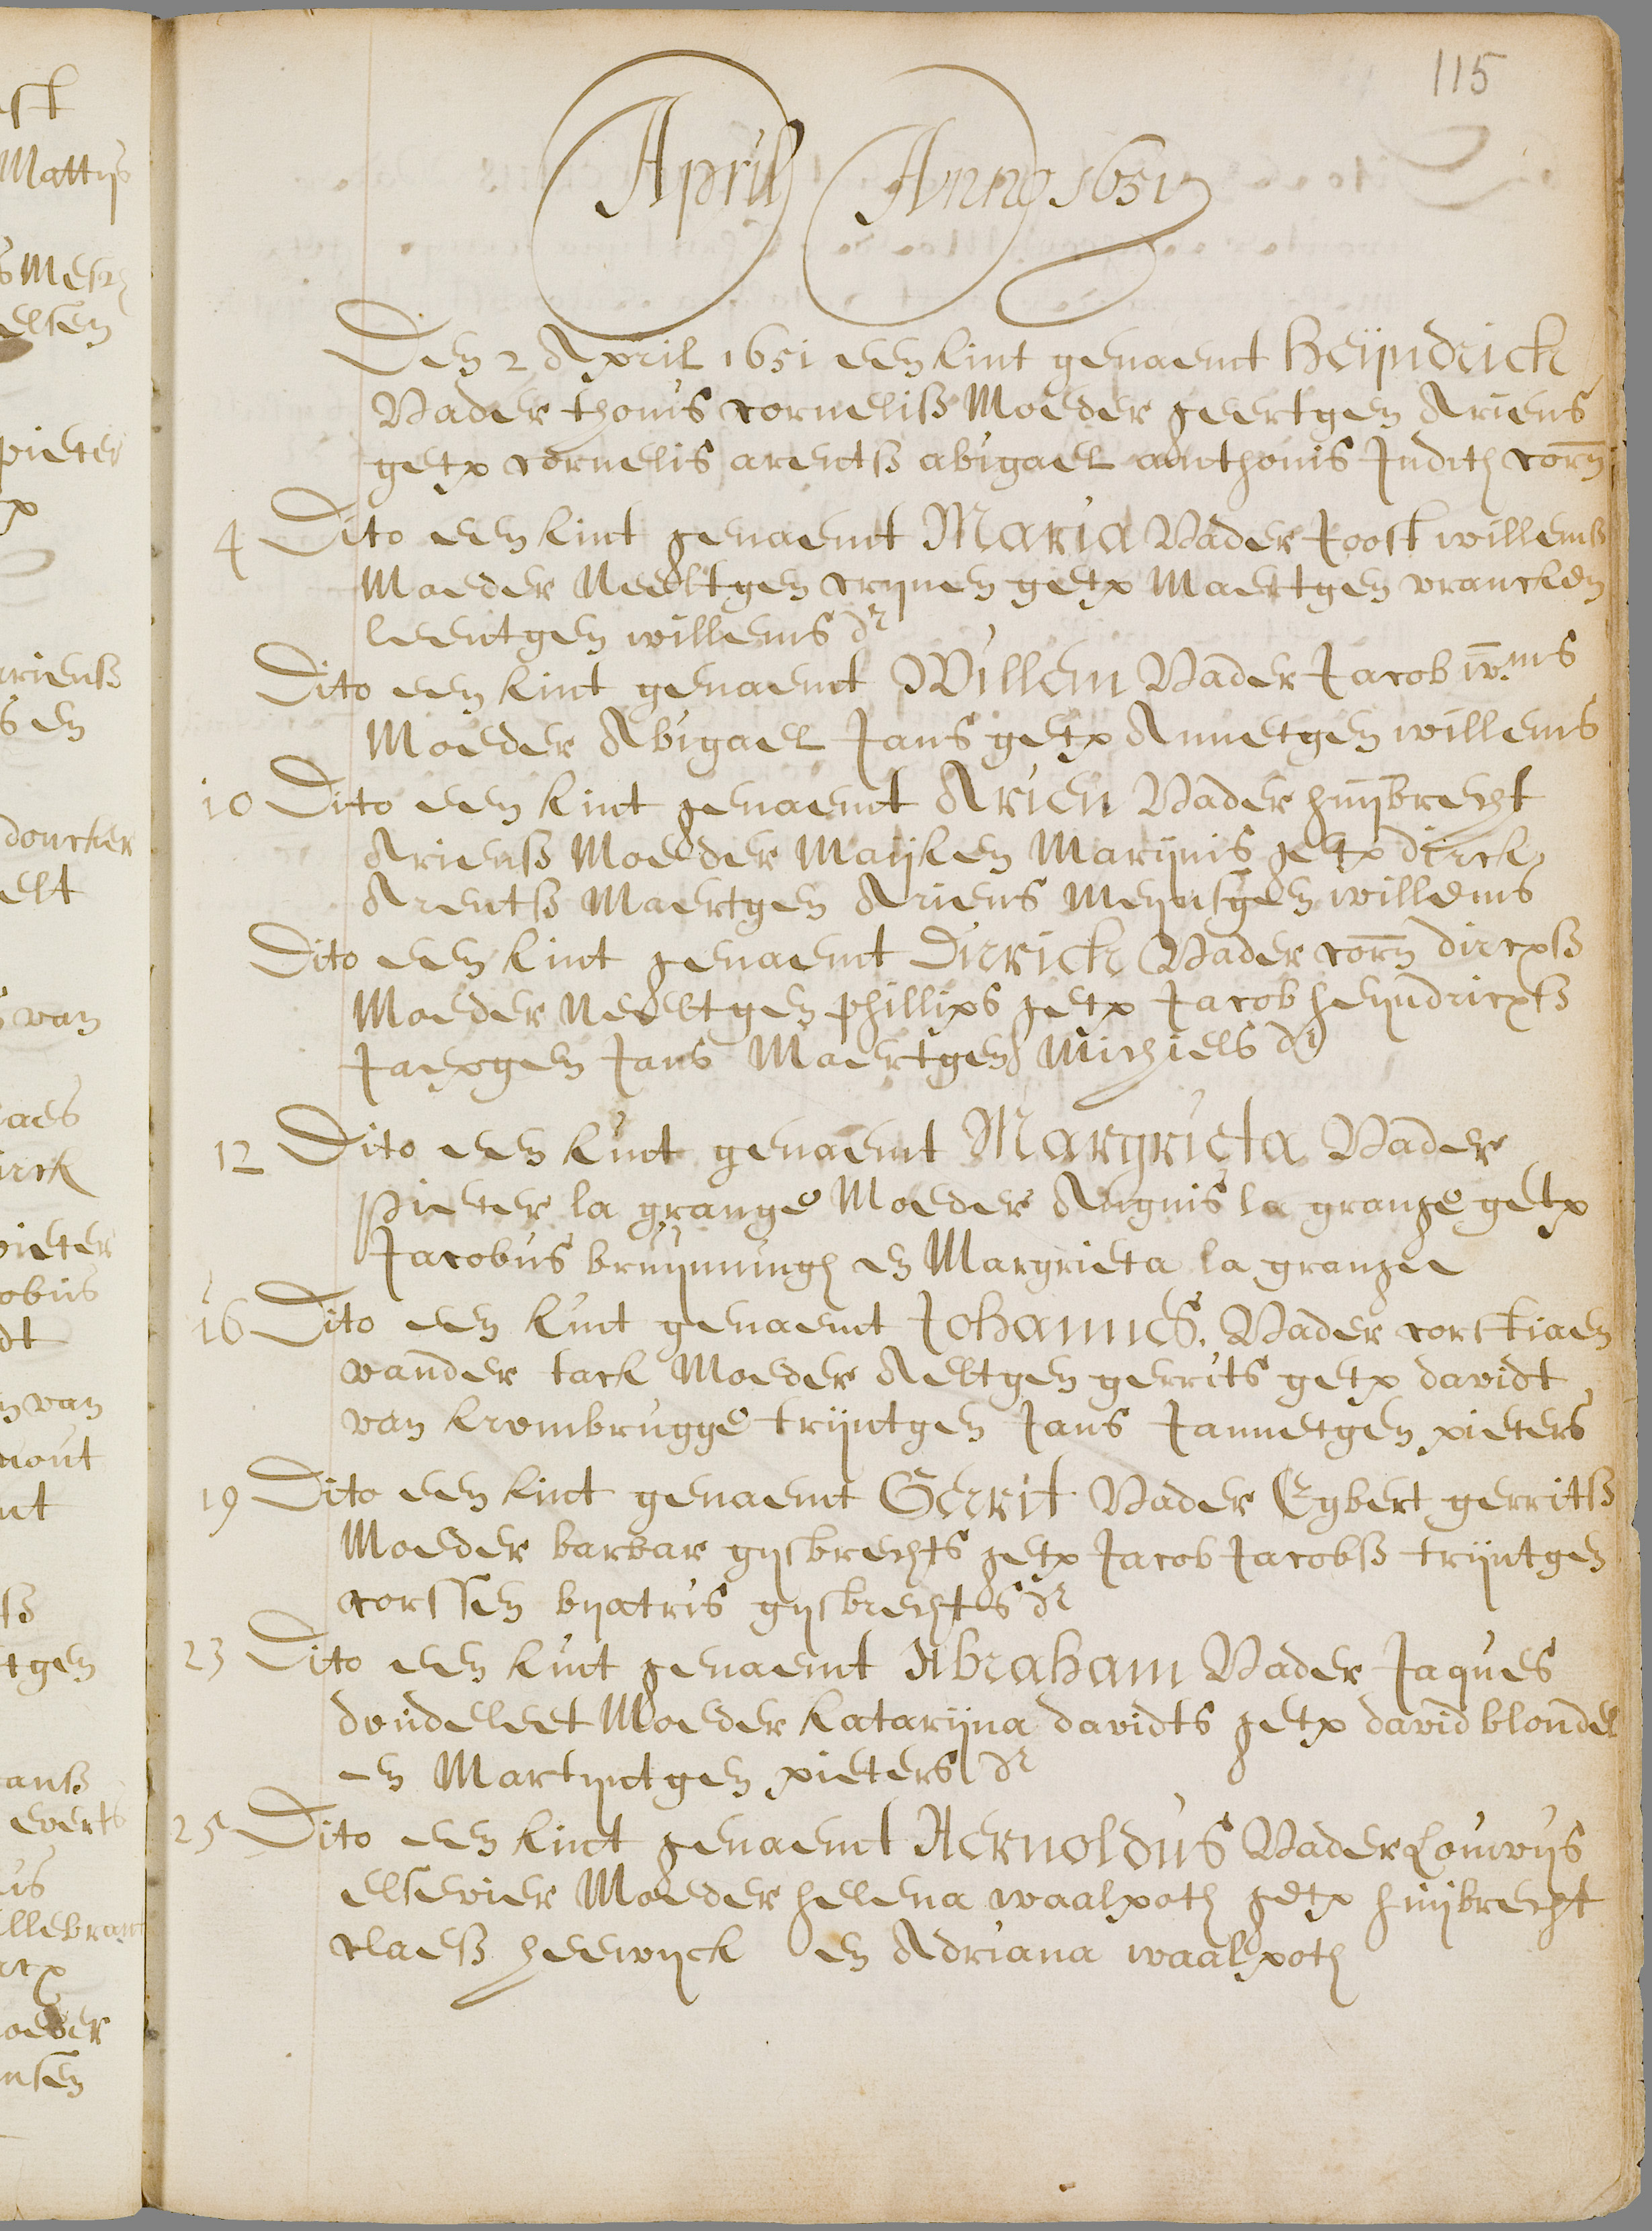 115
April Anno 1651
Den 2 April 1651 een kint genaemt Heijndrick
Vader thonis corneliss Moeder geertgen Ariens
getx cornelis arentss abigael anthonis Judith corn
4 Dito een kint genaemt Maria Vader Joost willemss
Moeder Neeltgen crynen getx Maertgen vrancken
leentgen willems dr
Dito een kint genaemt Willem Vader Jacob w.ms
Moeder Abigael Jans getx Annetgen willems
10 Dito een kint genaemt Arien Vader huijbrecht
Arienss Moeder Maijken Marijnis getx dirck
Arentss Maertgen Ariens Meynsgen willems
Dito een kint genaemt Dirrick Vader corn dircxss
Moeder Neeltgen phillips getx Jacob heijndricxss
Jaepgen Jans Maertgen Michiels dr
12 Dito een kint genaemt Margrieta Vader
Pieter la grange Moeder Angnis la grange getx
Jacobus bruijnningh en Margrieta la grangee
16 Dito een kint genaemt Johannes. Vader corstiaen
vander tack Moeder Aeltgen gerrits getx davidt
van krombrugge trijntgen Jans Jannetgen pieters
19 Dito een kint genaemt Gerrit Vader Egbert gerritss
Moeder barbar gysbrechts getx Jacob Jacobss trijntgen
corssen byatris gysbrechts dr
23 Dito een kint genaemt Abraham Vader Jaques
doudeleet Moeder katarijna davidts getx david blondel
en Martyntgen pieters dr
25 Dito een kint genaemt Aernoldus Vader Louwys
elsevier Moeder helena waalpoth getx huijbrecht
claess heewyck en Adriana waalpoth